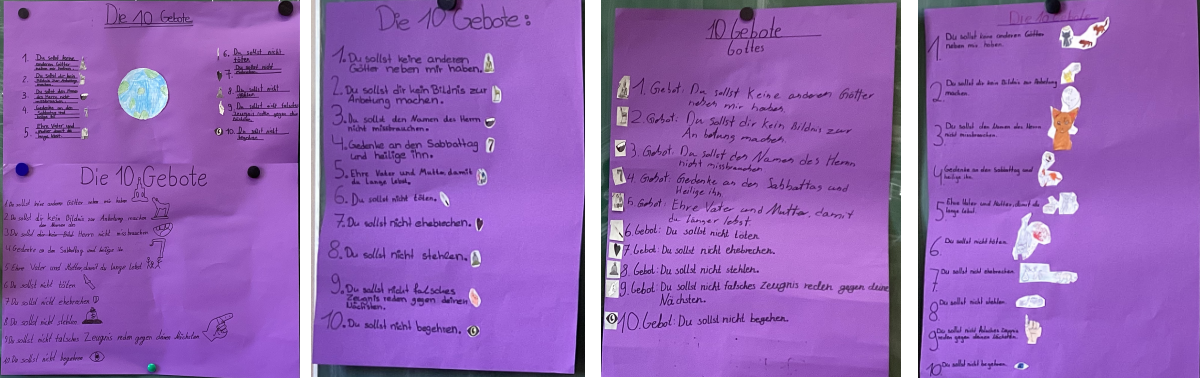 Die 10 Gebote
1. Du sollst keine
anderen Götter
neben mir haben.
2. Du sollst dir kein
Bildnis zur Anbetung
machen.
3. Du sollst den Namen
des Herrn nicht
missbrauchen.
4. Gedenke an den
Sabbattag und
heilige ihn.
5. Ehre Vater und
Mutter damit du
lange lebst.
6. Du sollst nicht
töten.
7. Du sollst nicht
ehebrechen.
8. Du sollst nicht
stehlen.
9. Du sollst nicht falsches
Zeugnis reden gegen deinen
Nächsten.
10. Du sollst nicht
begehren.
Die 10 Gebote
1. Du sollst keine anderen Götter neben mir haben
2. Du sollst dir kein Bildnis zur Anbetung machen
3. Du sollst Herrn nicht missbrauchen
4. Gedenke an den Sabbattag und heilige ihn.
5. Ehre Vater und Mutter, damit du lange lebst.
6. Du sollst nicht töten
7. Du sollst nicht ehebrechen
8. Du sollst nicht stehlen
9. Du sollst nicht falsches Zeugnis reden gegen deinen Nächsten
10. Du sollst nicht begehren
Die 10 Gebote:
1. Du sollst keine anderen
Götter neben mir haben.
2. Du sollst dir kein Bildnis zur
Anbetung machen.
3. Du sollst den Namen des Herrn
nicht missbrauchen.
4. Gedenke an den Sabbattag
und heilige ihn.
5. Ehre Vater und Mutter, damit
du lange lebst.
6. Du sollst nicht töten.
7. Du sollst nicht ehebrechen.
8. Du sollst nicht stehlen.
9. Du sollst nicht falsches
Zeugnis reden gegen deinen
Nächsten.
10. Du sollst nicht begehren.
10 Gebote
Gottes
1. Gebot: Du sollst keine anderen Götter
neben mir haben.
2. Gebot: Du sollst dir kein Bildnis zur
Anbetung machen.
3. Gebot: Du sollst den Namen des Herrn
nicht missbrauchen
4. Gebot: Gedenke an den Sabbattag und
Heilige ihn.
5. Gebot: Ehre Vater und Mutter, damit
du langer lebst.
6. Gebot: Du sollst nicht töten
7. Gebot: Du sollst nicht ehebrechen.
8. Gebot: Du sollst nicht stehlen.
9. Gebot: Du sollst nicht falsches Zeugnis reden gegen deine
Nächsten.
10. Gebot: Du sollst nicht begehren.
Die 10 Gebote
1. Du sollst keine anderen Götter
neben mir haben.
2. Du sollst dir kein Bildnis zur Anbetung
machen.
3. Du sollst den Namen des Herrn
nicht missbrauchen.
4. Gedenke an den Sabbattag und
heilige ihn.
5. Ehre Vater und Mutter, damit du
lange lebst.
6. Du sollst nicht töten.
7. Du sollst nicht ehebrechen.
8. Du sollst nicht stehlen.
9. Du sollst nicht falsches Zeugnis
reden gegen deinen Nächsten.
10. Du sollst nicht begehren.